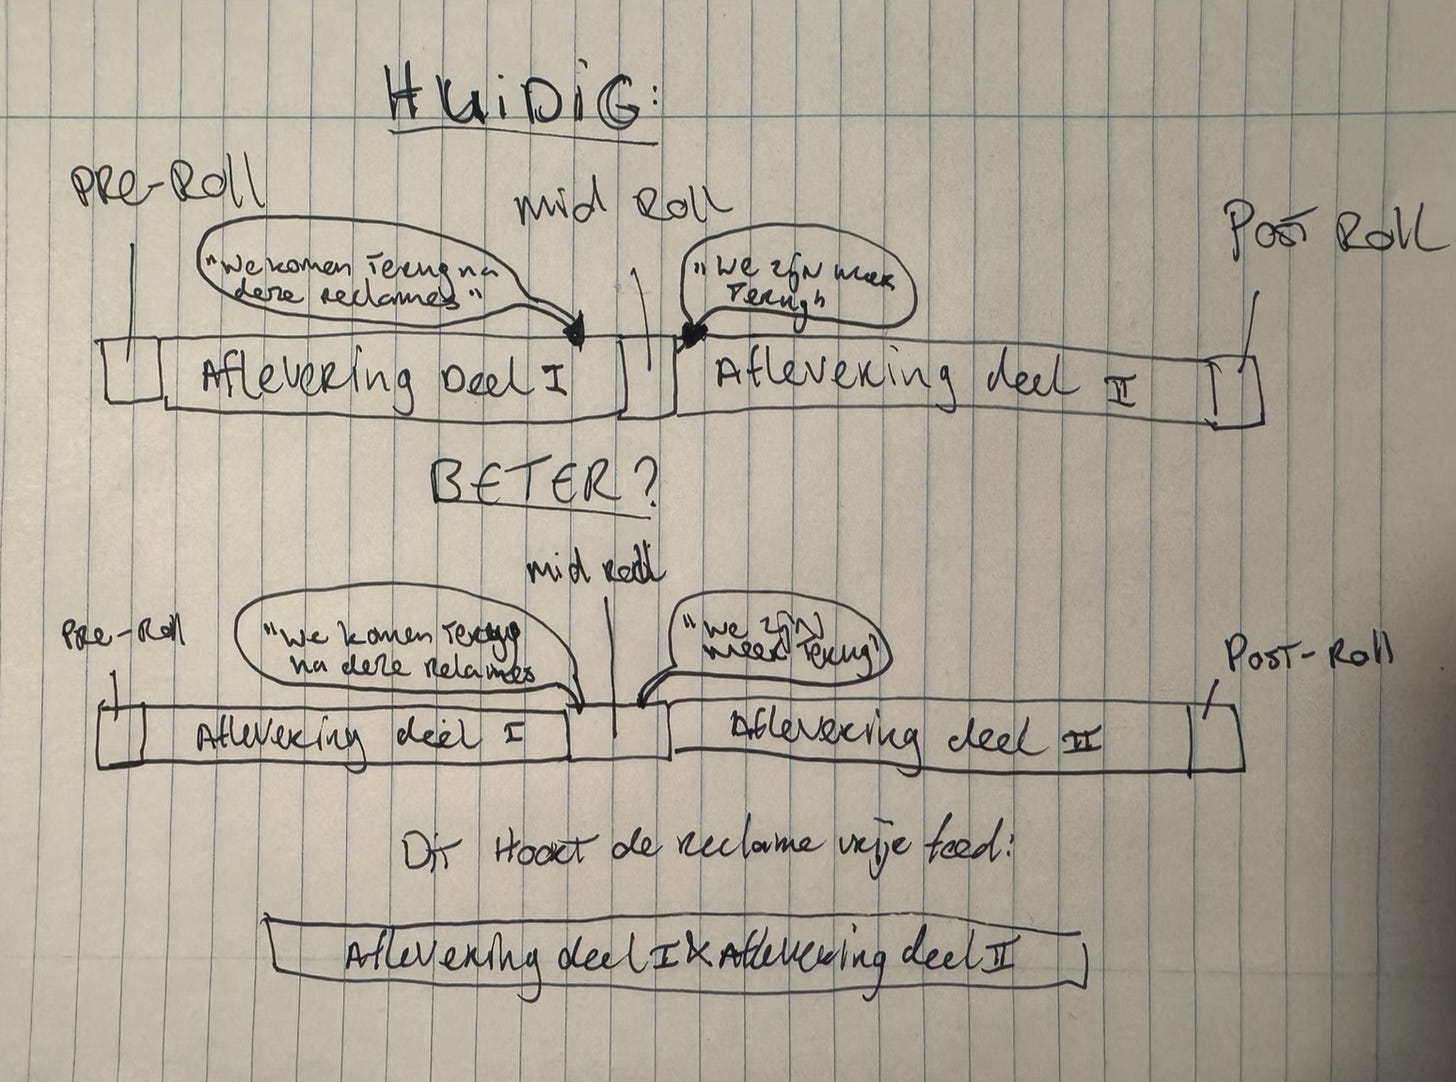 HUiDiG:
PRE-Roll
mid Roll
Post Roll
"We komen Terug na
deze reclames"
"We zijn weer
Terug"
Aflevering Deel I
Aflevering deel II
BETER?
mid roll
Pre-Roll
"We komen Terug
na deze relames
"We zijN
weer Terug"
Post-Roll
Aflevering deel I
Aflevering deel II
Dit Hoort de reclame vrije feed:
Aflevering deel I X Aflevering deel II